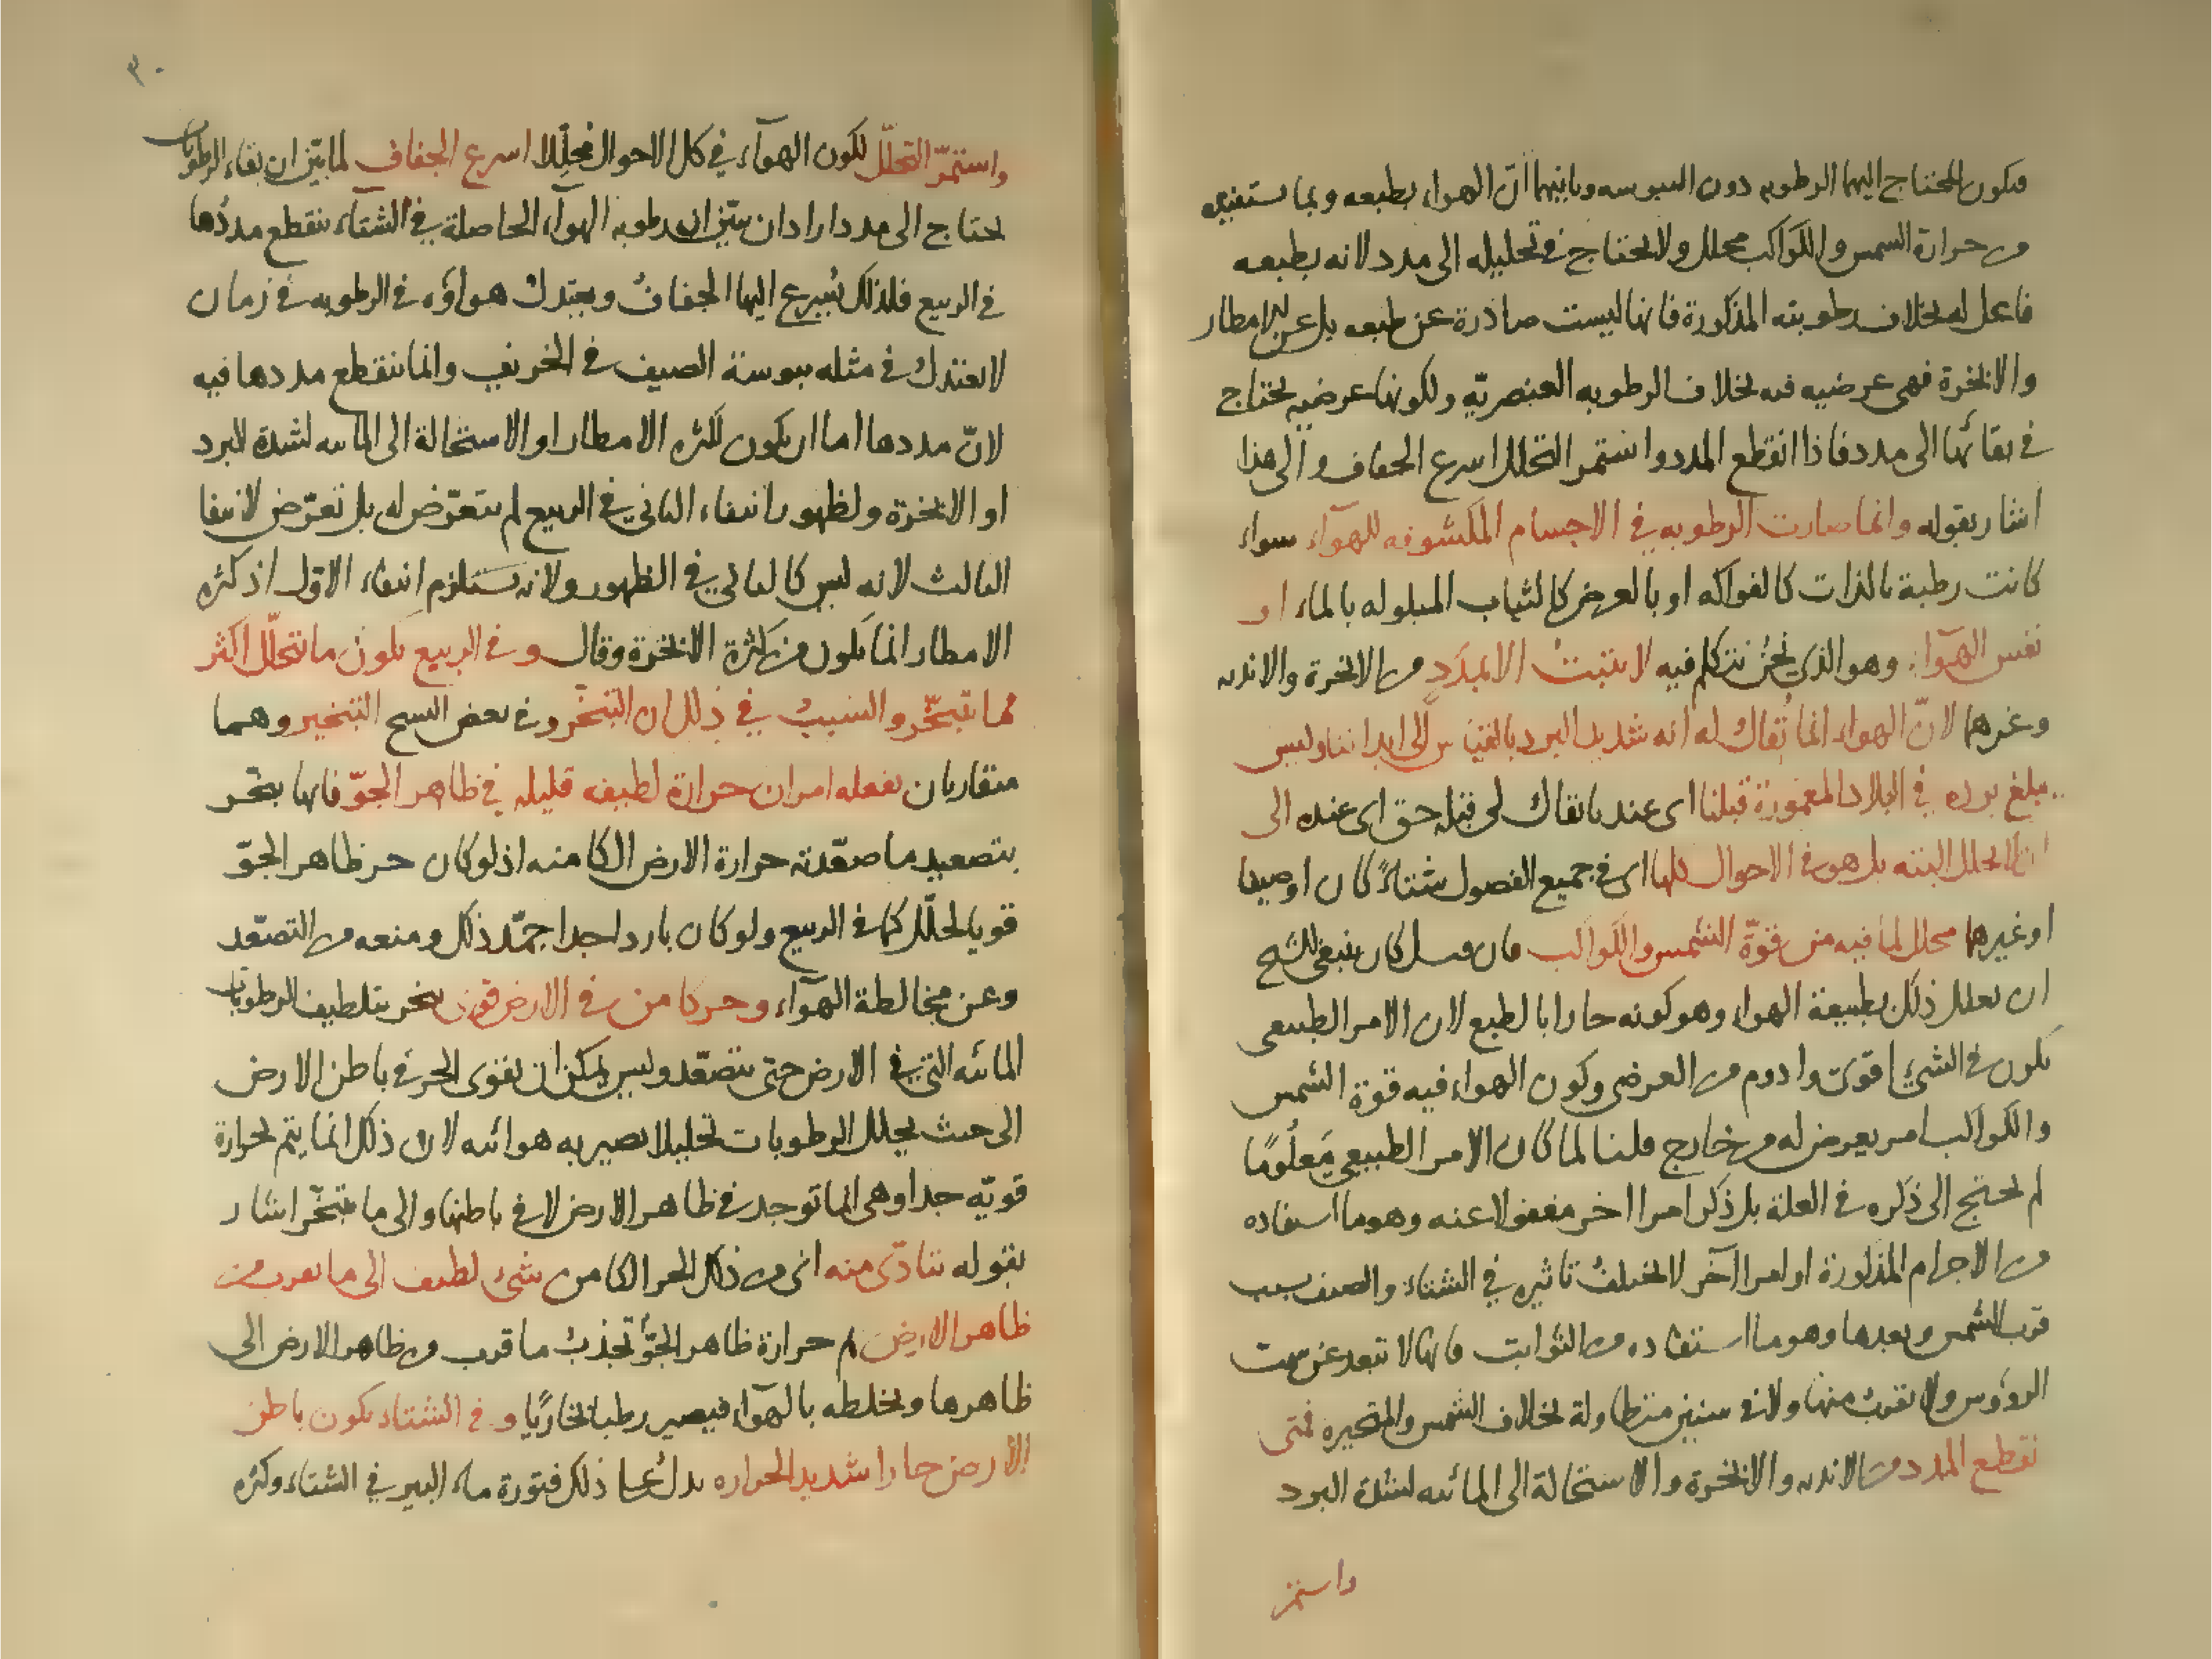 فيكون المحتاج اليها الرطوبه دون اليبوسه وثانيهما انّ الهواء بطبعه وبما يستفيده
من حرارة الشمس والكواكب محلل ولا يحتاج في تحليله الى مدد لانه بطبعه
فاعل له بخلاف رطوبته المذكورة فانها ليست صادرة عن طبعه بل عن الامطار
والابخرة فهى عرضيه فيه بخلاف الرطوبه العنصريّه ولكونها عرضيه يحتاج
في بقائها الى مدد فاذا انقطع المدد واستمر التحلل اسرع الجفاف والى هذا
اشار بقوله وانما صارت الرطوبه في الاجسام المكشوفه للهوآء سواء
كانت رطبة بالذات كالفواكه او بالعرض كالثياب المبلوله بالماء او
نفس الهوآء وهو الذى نحن نتكلم فيه لا يثبت الا بمدد من الابخرة والانديه
وغيرهما لانّ الهواء انما يُقال له انه شديد البرد بالقياس الى ابداننا وليس
يبلغ برده في البلاد المعمورة قبلنا اى عندنا يقال لى قبله حق اى عنده الى
ان لا يحلل البتة بل هو في الاحوال كلها اى في جميع الفصول شتاءً كان او صيفا
او غيرهما محلل لما فيه من قوّة الشمس والكواكب فان قيل كان ينبغى للشيخ
ان يعلل ذلك بطبيعة الهواء وهو كونه حارا بالطبع لان الامر الطبيعى
يكون في الشئ اقوى وادوم من العرضى وكون الهواء فيه قوة الشمس
والكواكب امر يعرض له من خارج قلنا لما كان الامر الطبيعي مَعلُومًا
لم يحتج الى ذكره في العلة بل ذكر امرا اخر مغفولا عنه وهو ما استفاده
من الاجرام المذكورة او امرا آخر لا يختلف تاثيره في الشتاء والصيف بسبب
قرب الشمس وبعدها وهو ما استفاده من الثوابت فانها لا تبعد عن سمت
الرؤس ولا تقرب منها ولا في سنين متطاولة بخلاف الشمس والمتحيره فمتى
انقطع المدد من الانديه والابخرة والاستحالة الى المائيه لشدة البرد
واستمر
٣٠
واستمرّ التحلّل لكون الهوآء في كل الاحوال محلِّلا اسرع الجفاف لما بيّن ان بقاء الرطوبات
يحتاج الى مدد اراد ان يبيّن ان رطوبه الهوآء الحاصلة في الشتاء ينقطع مددُها
في الربيع فلذلك يُسرع اليها الجفافُ ويعتدل هواؤه في الرطوبه في زمان
لا يعتدل في مثله يبوسة الصيف في الخريف وانما ينقطع مددها فيه
لانّ مددها اما ان يكون لكثره الامطار او الاستحالة الى المائيه لشدة البرد
او الابخرة ولظهور انتفاء الثاني في الربيع لم يتعرّض له بل تعرّض لانتفا
الثالث لانه ليس كالثاني في الظهور ولانه يستلزم انتفاء الاول اذ كثره
الامطار انما يكون من كثرة الابخرة وقال وفي الربيع يكون ما يتحلّل اكثر
مما يتبخّر والسببُ في ذلك ان التبخّر وفي بعض النسخ التبخير وهما
متقاربان يفعله امران حرارة لطيفه قليله في ظاهر الجوّ فانها يبخّر
بتصعيد ما صعّدته حرارة الارض الكامنه اذ لو كان حر ظاهر الجوّ
قويا لحلّل كما في الربيع ولو كان باردا جدا جمّد ذلك ومنعه من التصعّد
وعن مخالطة الهوآء وحر كامن في الارض قوى يبخر بتلطيف الرطوبات
المائيه التي في الارض حتى يتصعّد وليس يمكن ان يقوى الحر في باطن الارض
الى حيث يحلل الرطوبات تحليلا يصير به هوائيه لان ذلك انما يتم بحرارة
قويّه جدا وهى انما توجد في ظاهر الارض لا في باطنها والى ما يتبخّر اشار
بقوله يتادّى منه اى من ذلك الحر الكامن شئ لطيف الى ما يقرب من
ظاهر الارض ثم حرارة ظاهر الجوّ تجذبُ ما قرب من ظاهر الارض الى
ظاهرها ويخلطه بالهوآء فيصير رطبا بخاريًّا وفي الشتاء يكون باطن
الارض حارا شديد الحراره يدل على ذلك فتورة ماء البير في الشتاء وكثره